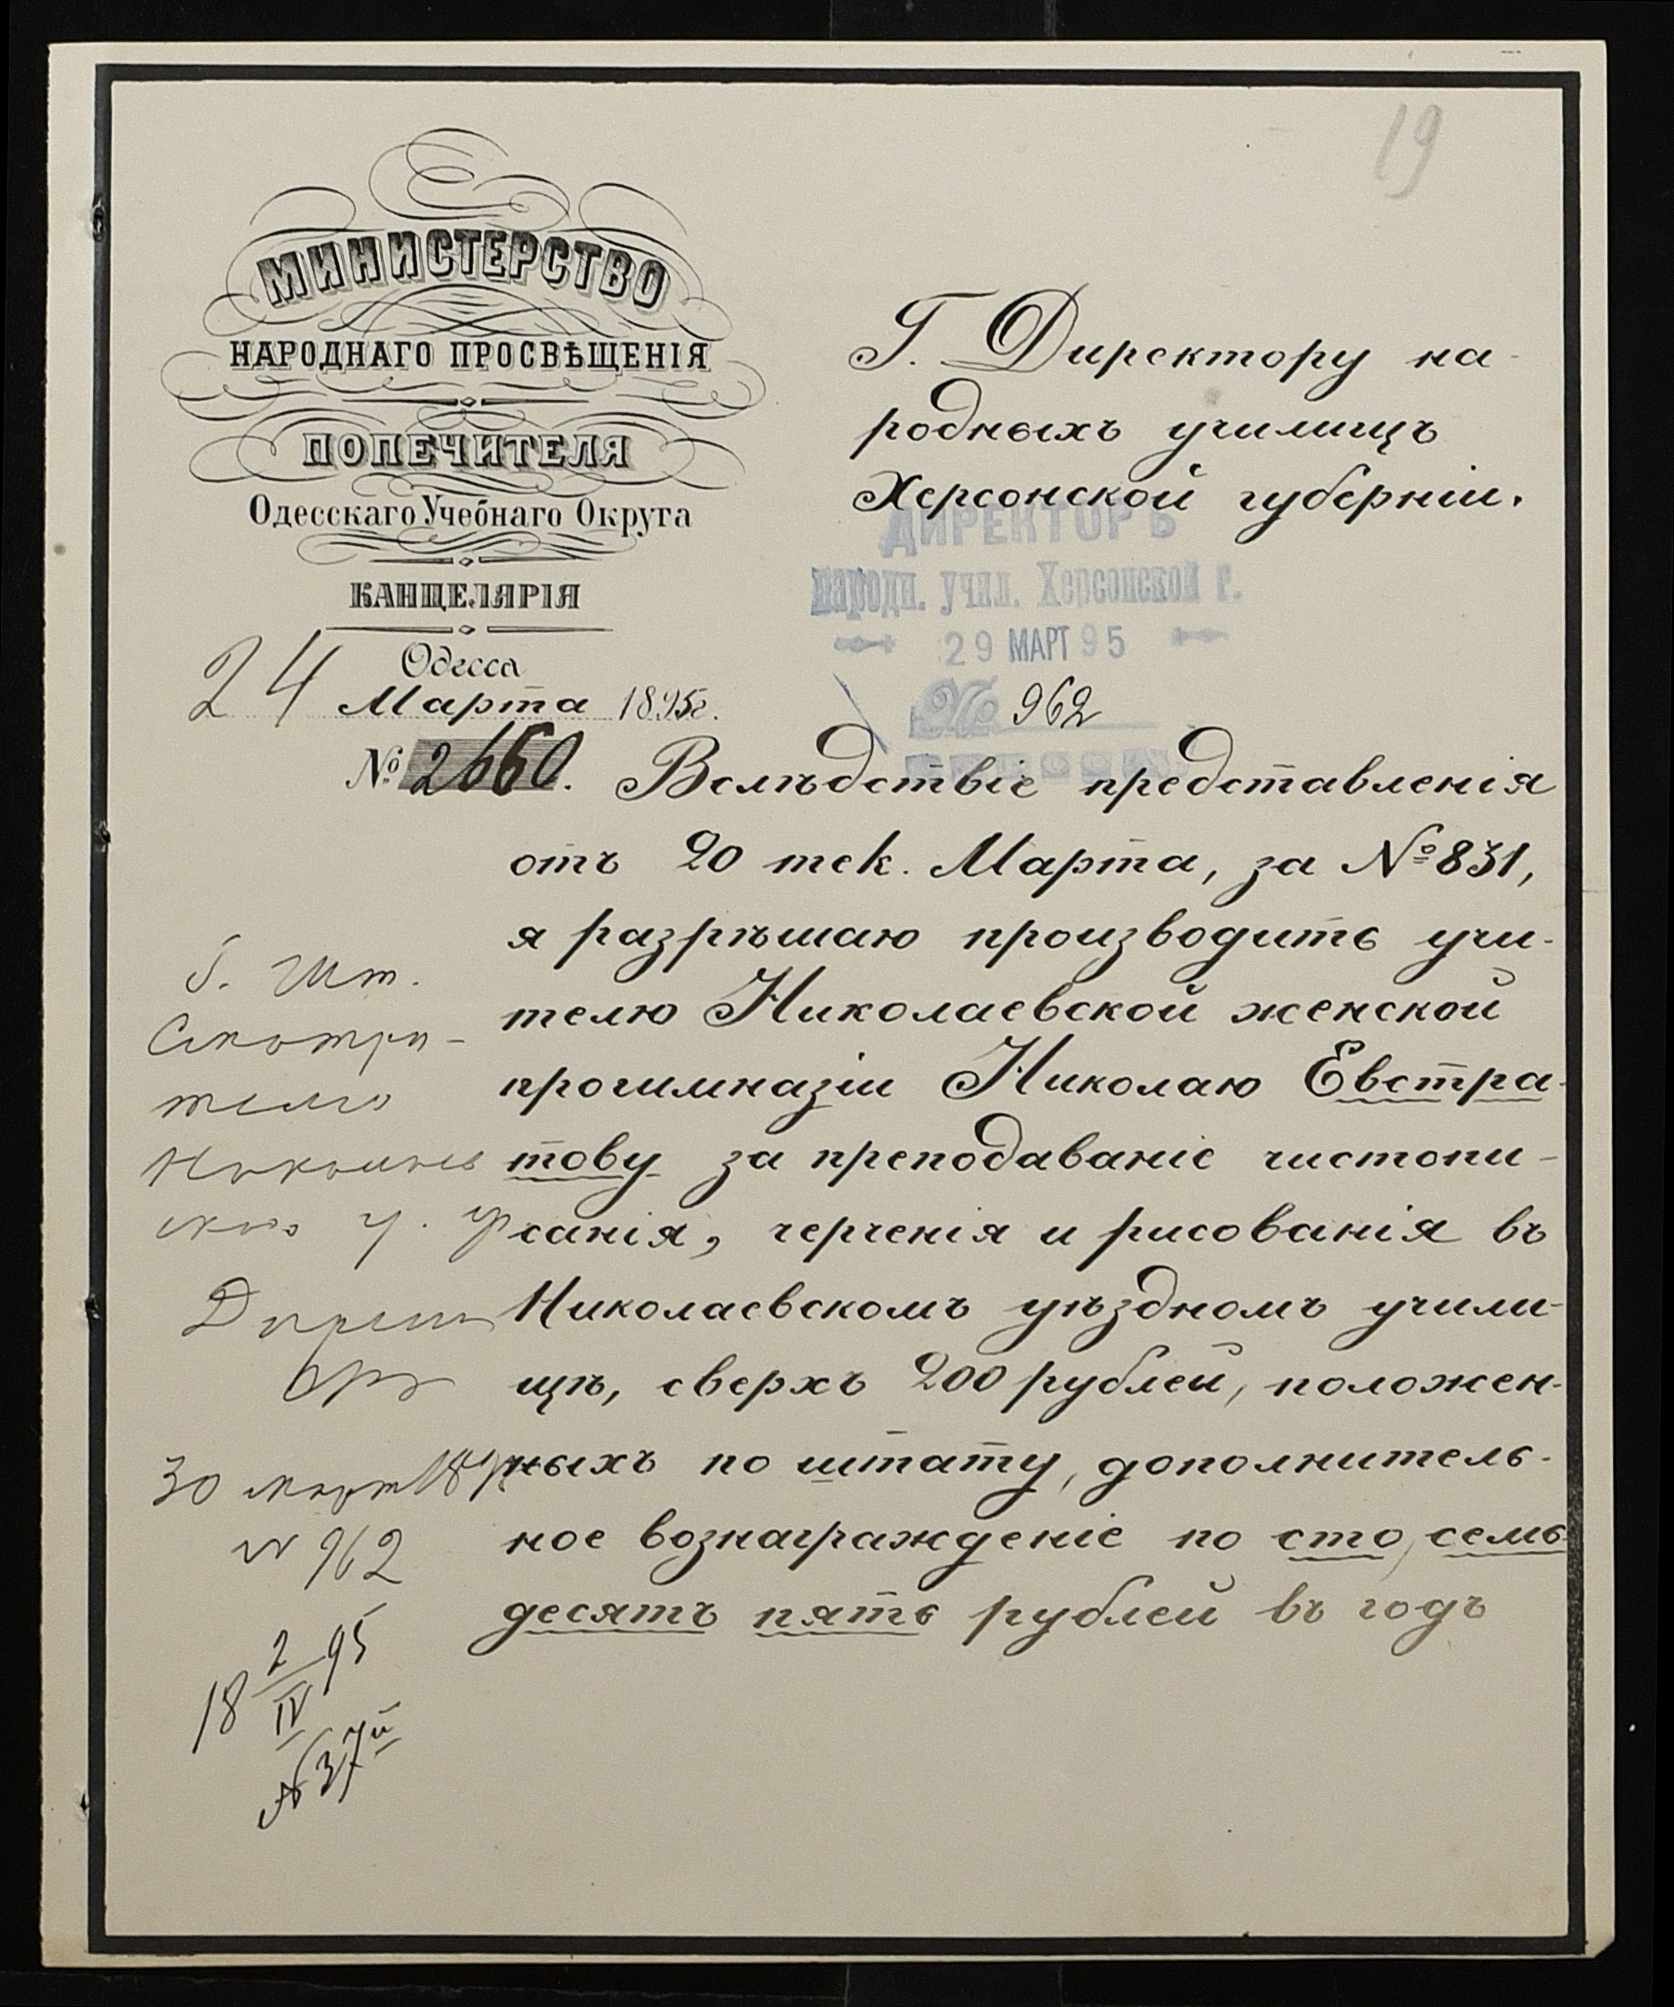 19
МИНИСТЕРСТВО
НАРОДНАГО ПРОСВѢЩЕНІЯ
ПОПЕЧИТЕЛЯ
Одесскаго Учебнаго Округа
КАНЦЕЛЯРІЯ
Одесса
24 Марта 1895 г.
№ 2660.
Г. Директору на-
родныхъ училищъ
Херсонской губерніи.
ДИРЕКТОРЪ
народн. учил. Херсонской г.
29 МАРТ 95
№ 962
Вслѣдствіе представленія
отъ 20 тек. Марта, за № 831,
я разрѣшаю производить учи-
телю Николаевской женской
прогимназіи Николаю Евстра-
тову за преподаваніе чистопи-
санія, черченія и рисованія въ
Николаевскомъ уѣздномъ учили-
щѣ, сверхъ 200 рублей, положен-
ныхъ по штату, дополнитель-
ное вознагражденіе по сто, семь
десятъ пять рублей въ годъ
Г. Шт.
Смотри-
телю
Николаев
скаго у.
30 март
№ 962
18 2/IV 95
№ 37й